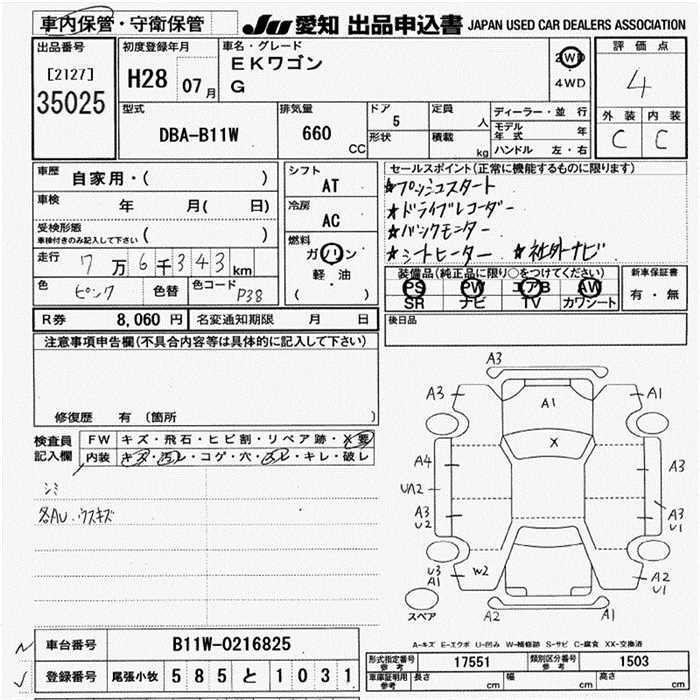 車内保管・守衛保管
JU 愛知 出品申込書 JAPAN USED CAR DEALERS ASSOCIATION
出品番号
[2127]
35025
初度登録年月
H28 07月
車名・グレード
EKワゴン
G
2WD
4WD
評価点
4
外装 内装
C C
型式
DBA-B11W
排気量
660 CC
ドア 5
形状
定員 人
積載 kg
ディーラー・並行
モデル年式 年
ハンドル 左・右
車歴 自家用・( )
車検 年 月( 日)
受検形態
車検付きのみ記入して下さい ( )
走行 7万6千343km
色 ピンク 色替 色コード P38
シフト AT
冷房 AC
燃料
ガソリン
軽・油
( )
セールスポイント(正常に機能するものに限ります)
★プッシュスタート
★ドライブレコーダー
★バックモニター
★シートヒーター ★社外ナビ
装備品(純正品に限り○をつけてください)
PS PW エアB AW
SR ナビ TV カワシート
新車保証書
有・無
R券 8,060円 名変通知期限 月 日
後日品
注意事項申告欄(不具合内容等は具体的に記入して下さい)
修復歴 有 〔箇所 〕
検査員記入欄
FW キズ・飛石・ヒビ割・リペア跡・X要
内装 キズ・汚レ・コゲ・穴・スレ・キレ・破レ
シミ
各AU.ウスキズ
A3
A3 A1 A1
X
A4 A3
UA2
A3 U2 A3 U1
U3 A1 W2 A2 U1
スペア A2 A1
A-キズ E-エクボ U-凹み W-補修跡 S-サビ C-腐食 XX-交換済
車台番号 B11W-0216825
登録番号 尾張小牧 585 と 1031
形式指定番号 参考 17551 類別区分番号 参考 1503
車庫証明用 参考 長さ cm 幅 cm 高さ cm